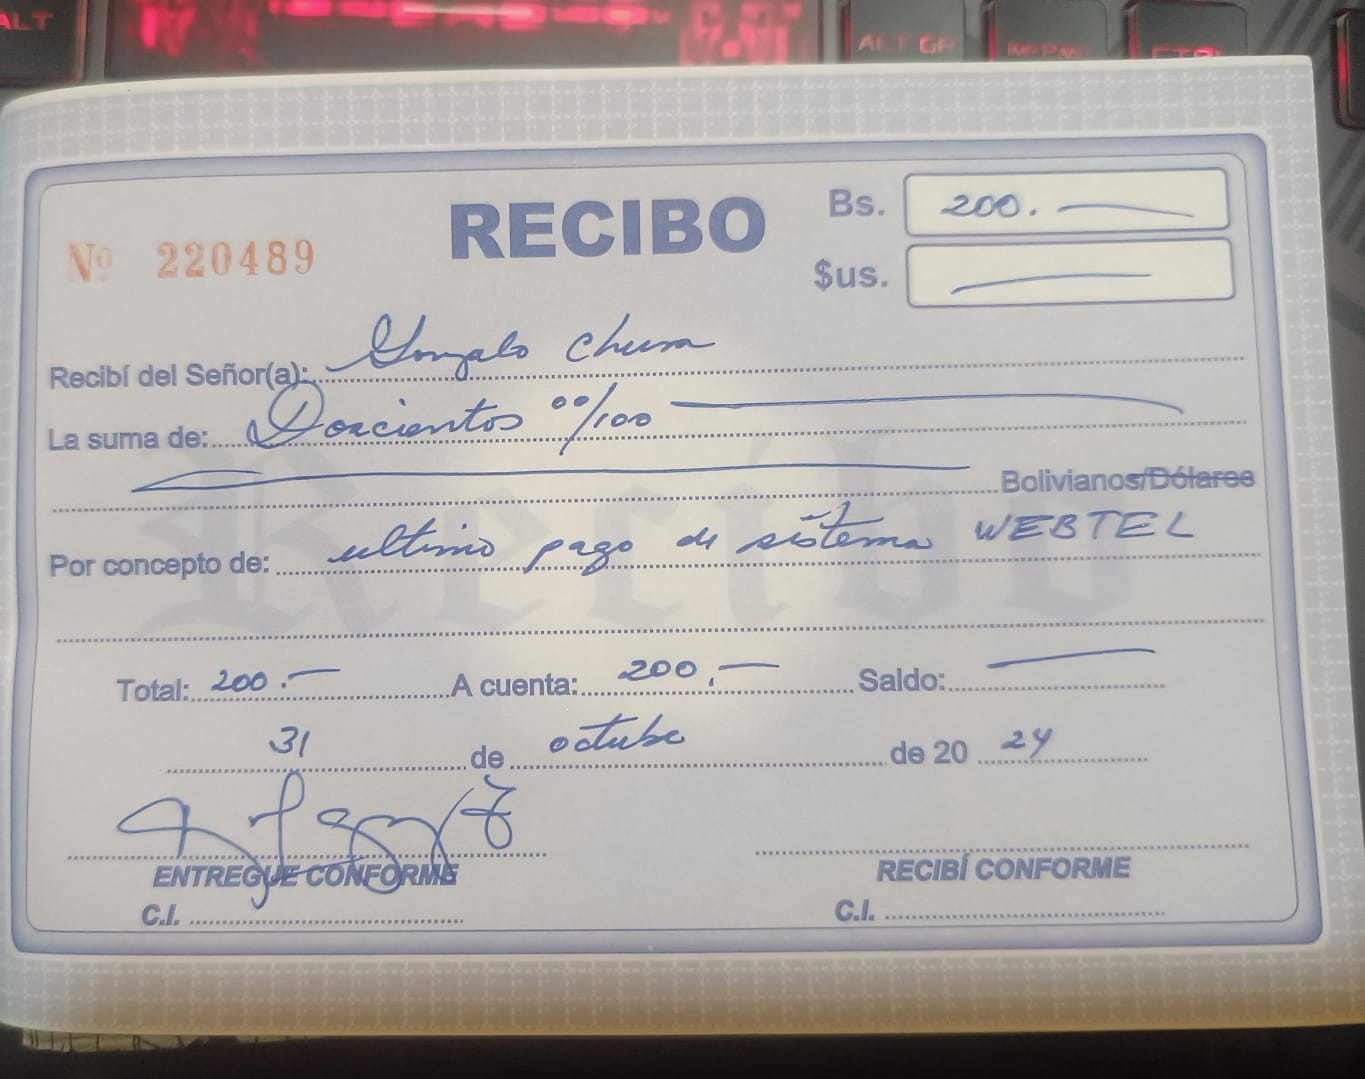 ALT
ALT GR
IMP PANT
CTRL
RECIBO
Nº 220489
Bs. 200.
$us.
Recibí del Señor(a): Gonzalo Chura
La suma de: Doscientos 00/100
Bolivianos/Dólares
Por concepto de: ultimo pago de sistema WEBTEL
Recibo
Total: 200.- A cuenta: 200,- Saldo:
31 de octubre de 20 24
ENTREGUE CONFORME
RECIBÍ CONFORME
C.I.
C.I.